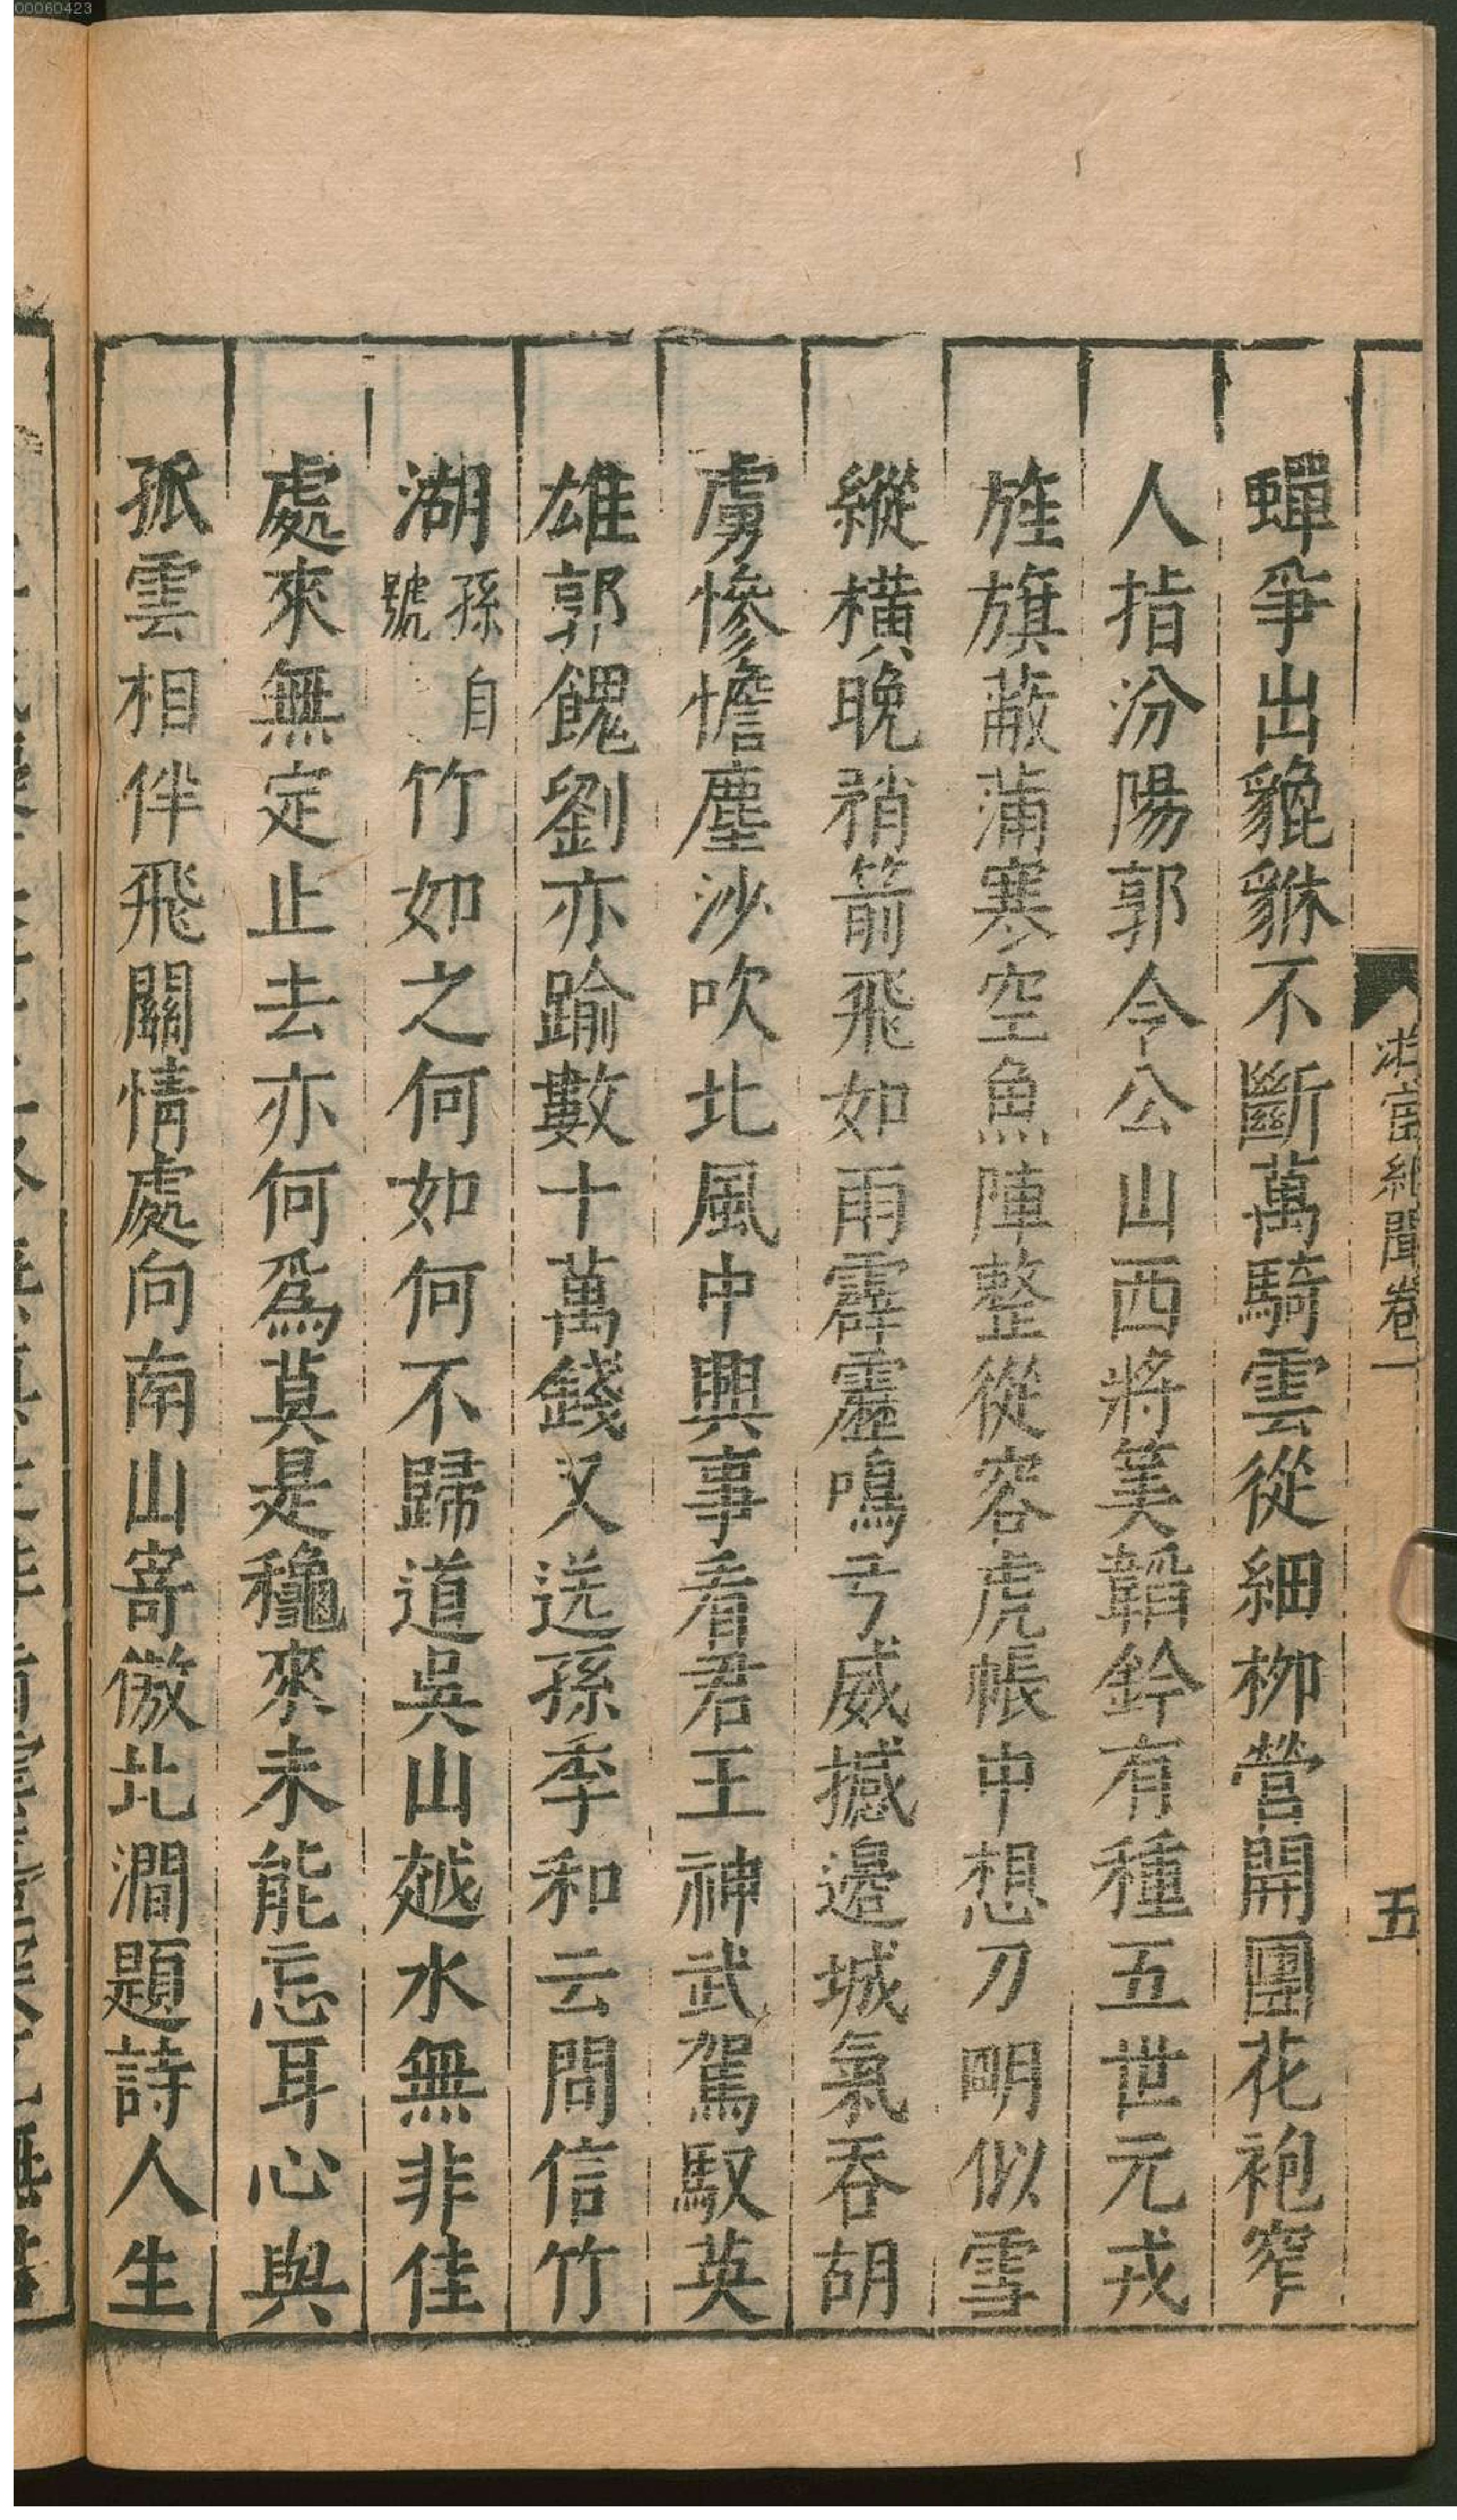 00060423
蟬爭出貔貅不斷萬騎雲從細柳營開團花袍窄
人指汾陽郭令公山西將筭韜鈐有種五世元戎
旌旗蔽蒲寒空魚陣整從容虎帳中想刀明似雪
縱橫晚矟箭飛如雨霹靂鳴弓威撼邊城氣吞胡
虜慘憺塵沙吹北風中興事看君王神武駕馭英
雄郭餽劉亦踰數十萬錢又送孫季和云問信竹
湖孫自號竹如之何如何不歸道吳山越水無非佳
處來無定止去亦何爲莫是穐來未能忘耳心與
孤雲相伴飛關情處向南山寄傲北澗題詩人生
聞卷一
五